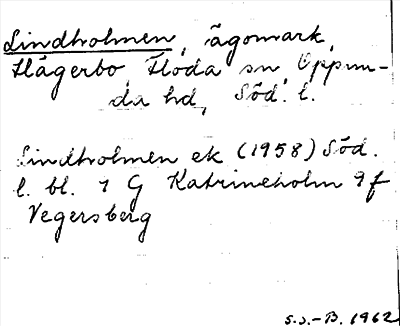 Lindholmen, ägomark,
Hägerbo, Floda sn, Oppun-
da hd, Söd. l.
Lindholmen ek (1958) Söd.
l. bl. 7 G Katrineholm 9f
Vegersberg
S.S.-B. 1962